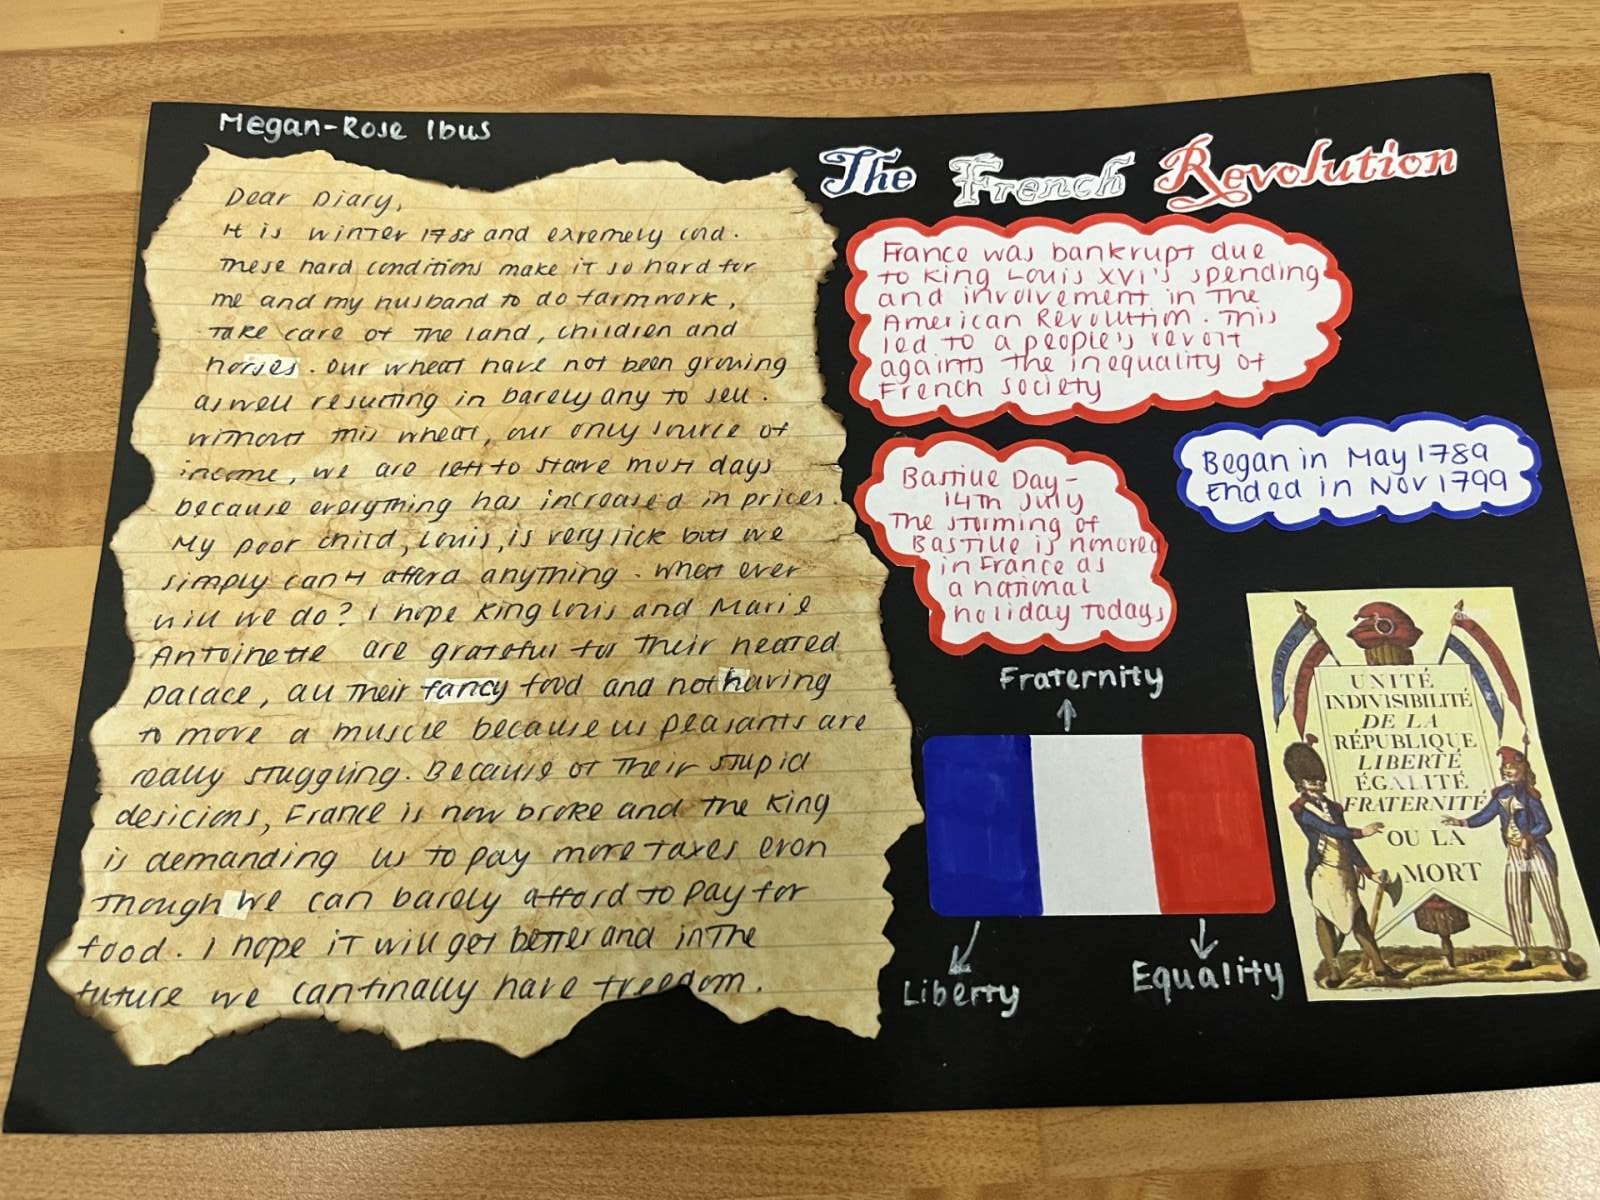 Megan-Rose Ibus
Dear Diary,
It is winter 1788 and exremely cold.
These hard conditions make it so hard for
me and my husband to do farmwork,
take care of the land, children and
horses. Our wheat have not been growing
aswell resulting in barely any to sell.
without this wheat, our only source of
income, we are left to starve most days
because everything has increased in prices.
My poor child, Louis, is very sick but we
simply can't afford anything. What ever
will we do? I hope King Louis and Marie
Antoinette are grateful for their heated
palace, all their fancy food and not having
to move a muscle because us peasants are
really stuggling. Because of their stupid
desicions, France is now broke and the King
is demanding us to pay more taxes even
though we can barely afford to pay for
food. I hope it will get better and in the
future we can finally have freedom.
The French Revolution
France was bankrupt due
to King Louis XVI's spending
and involvement in the
American Revolution. This
led to a people's revolt
againts the inequality of
French society
Bastille Day -
14th July
The storming of
Bastille is honored
in France as
a national
holiday todays
Began in May 1789
Ended in Nov 1799
Fraternity
Liberty
Equality
UNITÉ
INDIVISIBILITÉ
DE LA
RÉPUBLIQUE
LIBERTÉ
ÉGALITÉ
FRATERNITÉ
OU LA
MORT